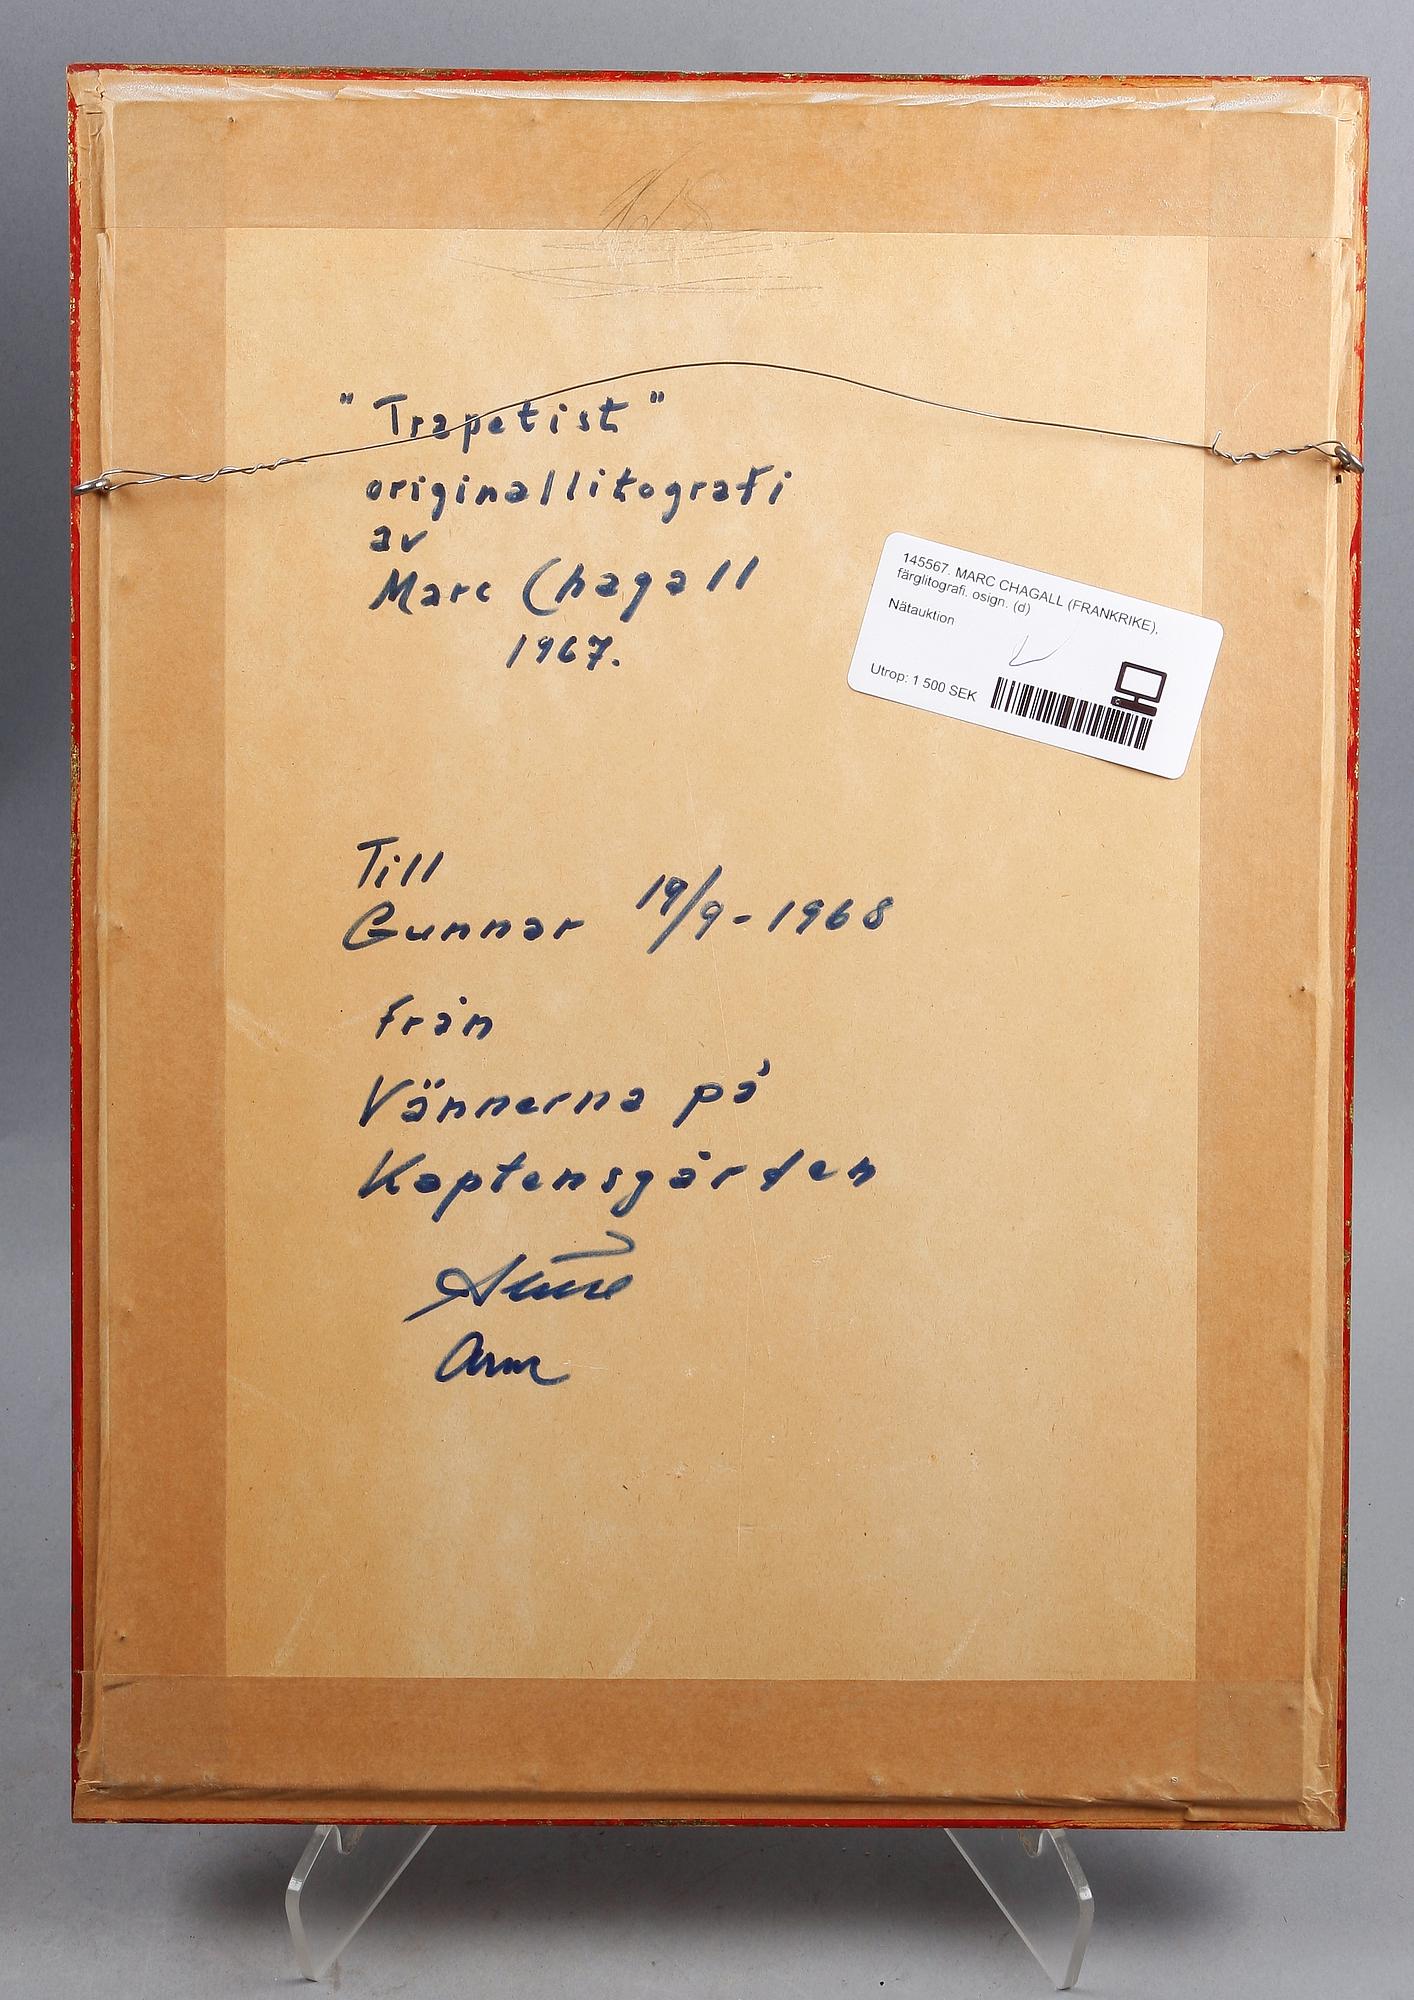 "Trapetist"
originallitografi
av
Marc Chagall
1967.
145567. MARC CHAGALL (FRANKRIKE),
färglitografi. osign. (d)
Nätauktion
Utrop: 1 500 SEK
Till
Gunnar 19/9-1968
från
Vännerna på
Kaptensgården
Sture